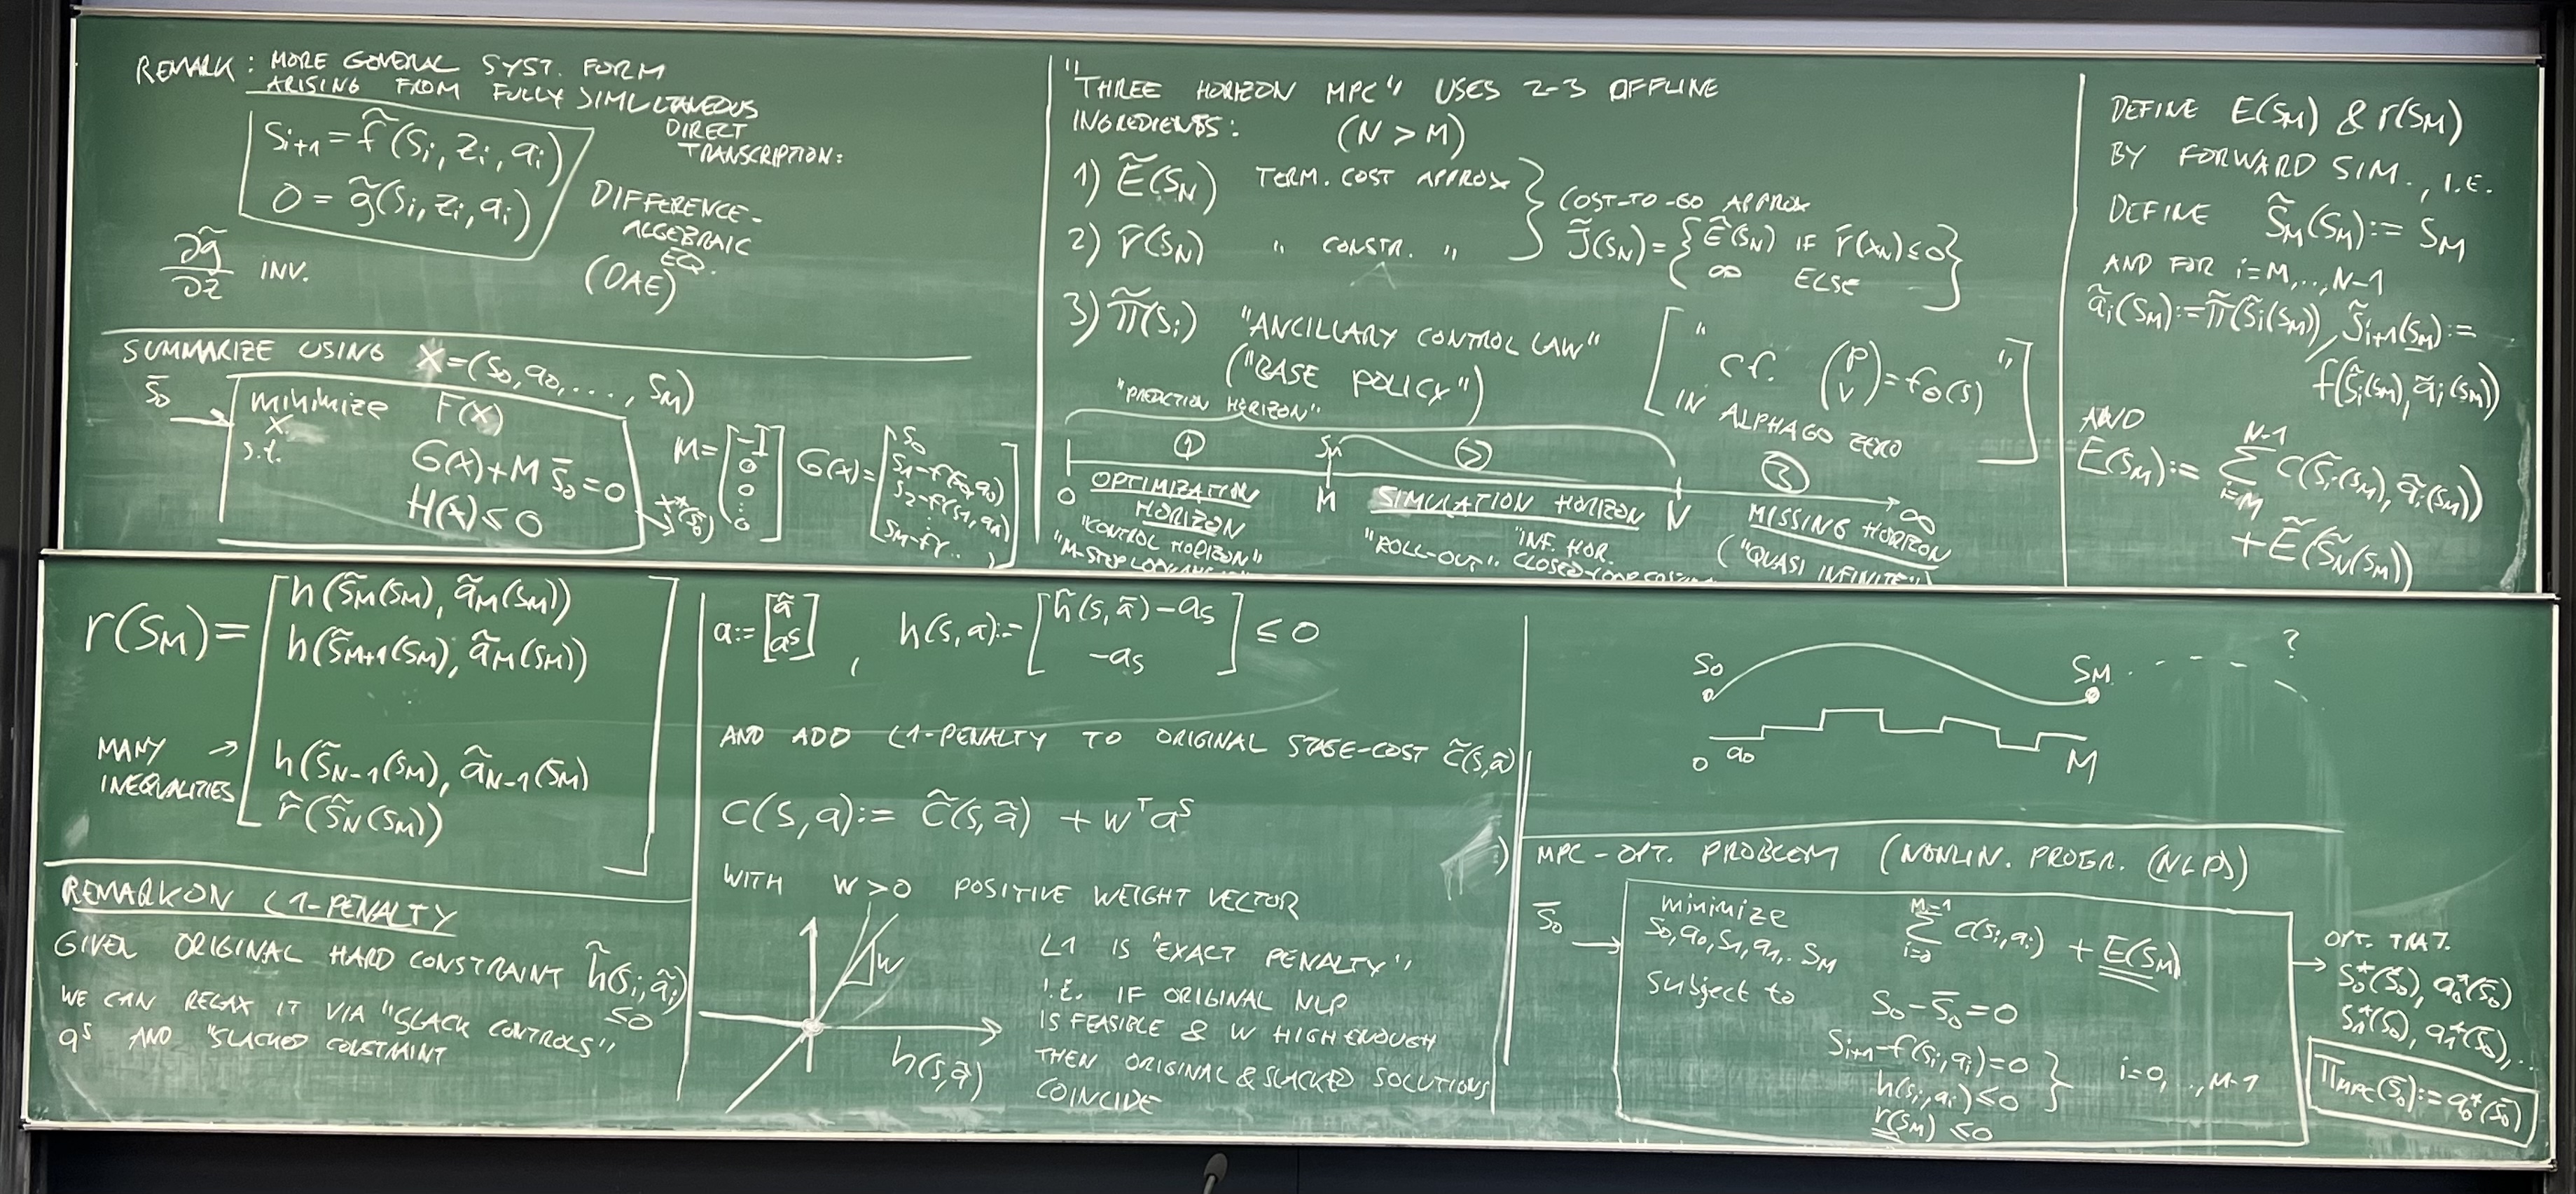 REMARK: MORE GENERAL SYST. FORM
ARISING FROM FULLY SIMULTANEOUS
DIRECT
TRANSCRIPTION:
s_{i+1} = f̃(s_i, z_i, a_i)
0 = g̃(s_i, z_i, a_i)
DIFFERENCE-
ALGEBRAIC
EQ.
(DAE)
∂g̃/∂z INV.
SUMMARIZE USING X=(s_0, a_0, ..., s_M)
s̄_0 →
minimize F(X)
X
s.t.
G(X)+M s̄_0 = 0
H(X) ≤ 0
→ X*(s̄_0)
M = [-I 0 0 : 0]
G(X) = [s_0
s_1-f(s_0,a_0)
s_2-f(s_1,a_1)
:
s_M-f(.. )]
"THREE HORIZON MPC" USES 2-3 OFFLINE
INGREDIENTS: (N > M)
1) Ẽ(s_N) TERM. COST APPROX
2) r̃(s_N) " CONSTR. "
COST-TO-GO APPROX
J̃(s_N) = { Ẽ(s_N) IF r̃(x_N) ≤ 0
∞ ELSE }
3) π̃(s_i) "ANCILLARY CONTROL LAW"
("BASE POLICY")
[" cf. (P V) = f_θ(s) "
IN ALPHAGO ZERO]
"PREDICTION HORIZON"
① s_M ② ③
0 M N ∞
OPTIMIZATION
HORIZON
"CONTROL HORIZON"
"M-STEP
SIMULATION HORIZON
"ROLL-OUT" "INF. HOR.
CLOSED-LOOP
MISSING HORIZON
("QUASI INFINITE")
DEFINE E(s_M) & r(s_M)
BY FORWARD SIM., I.E.
DEFINE s̃_M(s_M) := s_M
AND FOR i=M,..,N-1
ã_i(s_M) := π̃(s̃_i(s_M)), s̃_{i+1}(s_M) :=
f(s̃_i(s_M), ã_i(s_M))
AND
E(s_M) := Σ_{i=M}^{N-1} c(s̃_i(s_M), ã_i(s_M))
+ Ẽ(s̃_N(s_M))
r(s_M) = [h(s̃_M(s_M), ã_M(s_M))
h(s̃_{M+1}(s_M), ã_M(s_M))
h(s̃_{N-1}(s_M), ã_{N-1}(s_M)
r̃(s̃_N(s_M))]
MANY →
INEQUALITIES
REMARK ON L1-PENALTY
GIVEN ORIGINAL HARD CONSTRAINT h̃(s_i, ã_i)
≤0
WE CAN RELAX IT VIA "SLACK CONTROLS"
a^s AND "SLACKED CONSTRAINT
a := [ã a^s], h(s,a) := [h̃(s,ã) - a_s
-a_s] ≤ 0
AND ADD L1-PENALTY TO ORIGINAL STAGE-COST c̃(s,ã)
c(s,a) := c̃(s,ã) + w^T a^s
WITH w > 0 POSITIVE WEIGHT VECTOR
w
h(s,ã)
L1 IS "EXACT PENALTY",
I.E. IF ORIGINAL NLP
IS FEASIBLE & W HIGH ENOUGH
THEN ORIGINAL & SLACKED SOLUTIONS
COINCIDE
s_0 s_M ?
0 a_0 M
MPC-OPT. PROBLEM (NONLIN. PROGR. (NLP))
s̄_0 →
minimize Σ_{i=0}^{M-1} c(s_i,a_i) + E(s_M)
s_0,a_0,s_1,a_1,..s_M
subject to s_0 - s̄_0 = 0
s_{i+1} - f(s_i,a_i) = 0
h(s_i,a_i) ≤ 0
} i=0,..,M-1
r(s_M) ≤ 0
→ OPT. TRAJ.
s_0*(s̄_0), a_0*(s̄_0)
s_1*(s̄_0), a_1*(s̄_0),..
π_MPC(s̄_0) := a_0*(s̄_0)